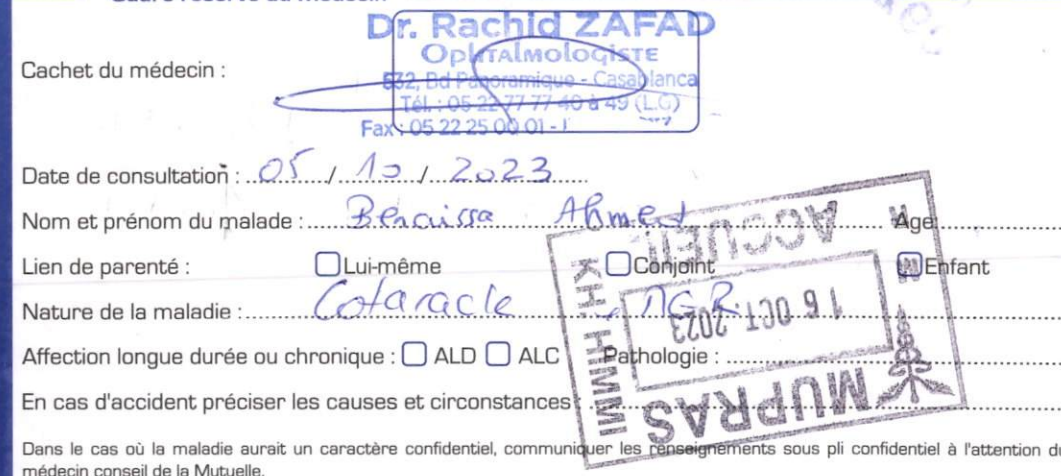 Dr. Rachid ZAFAD
OphTAlmologisTE
Cachet du médecin :
532, Bd Panoramique - Casablanca
Tél. : 05 22 77 77 40 à 49 (L.G)
Fax : 05 22 25 00 01 -
Date de consultation : 05 / 10 / 2023
Nom et prénom du malade : Benaissa Ahmed Age:
Lien de parenté : Lui-même Conjoint Enfant
Nature de la maladie : Cataracte
Affection longue durée ou chronique : ALD ALC Pathologie :
En cas d'accident préciser les causes et circonstances :
Dans le cas où la maladie aurait un caractère confidentiel, communiquer les renseignements sous pli confidentiel à l'attention d
médecin conseil de la Mutuelle.
ACCUEIL
16 OCT. 2023
KH. HIMMI
MUPRAS